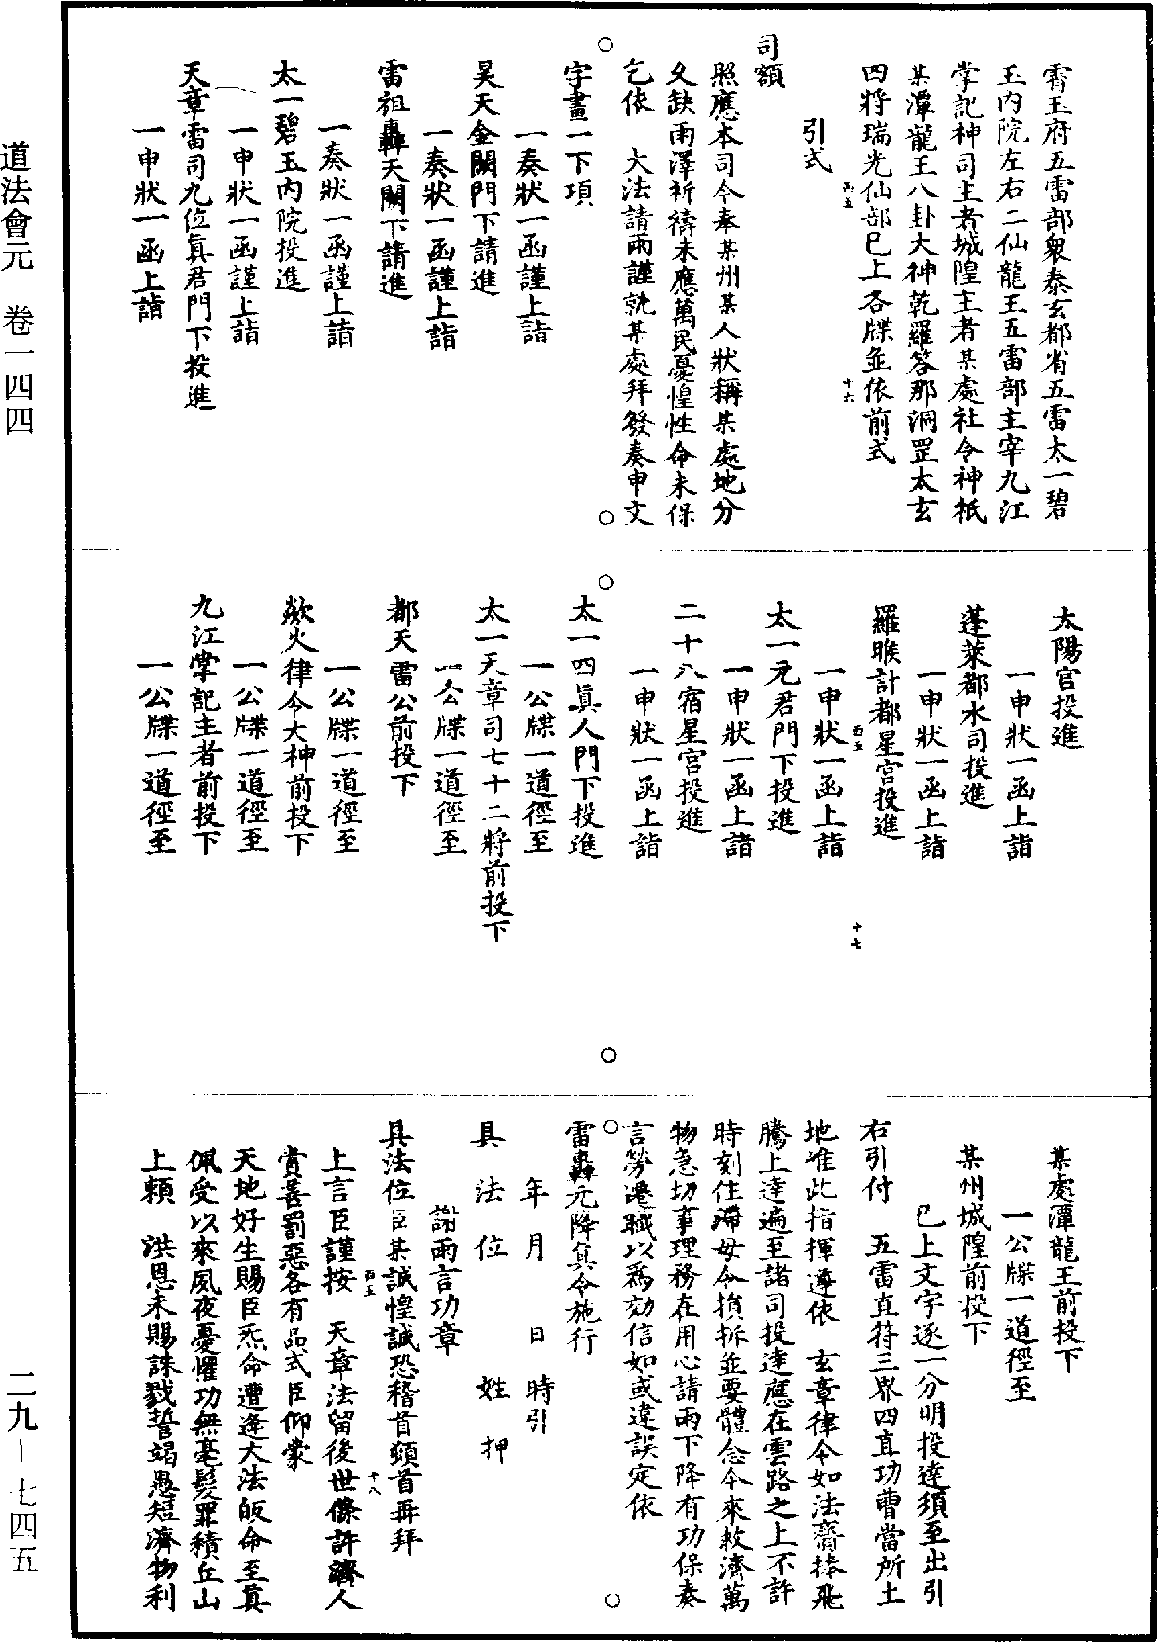 霄玉府五雷部眾泰玄都省五雷太一碧
玉內院左右二仙龍王五雷部主宰九江
掌記神司主者城隍主者某處社令神祇
某潭龍王八卦大神乾羅答那洞罡太玄
四將瑞光仙部已上各牒並依前式
引式
司額
照應本司今奉某州某人狀稱某處地分
久缺雨澤祈禱未應萬民憂惶性命未保
乞依　大法請雨謹就某處拜發奏申文
字畫一下項
一奏狀一函謹上詣
昊天金闕門下請進
一奏狀一函謹上詣
雷祖轟天闕下請進
一奏狀一函謹上詣
太一碧玉內院投進
一申狀一函謹上詣
天章雷司九位真君門下投進
一申狀一函上詣
太陽宮投進
一申狀一函上詣
蓬萊都水司投進
一申狀一函上詣
羅睺計都星宮投進
一申狀一函上詣
太一元君門下投進
一申狀一函上詣
二十八宿星宮投進
一申狀一函上詣
太一四真人門下投進
一公牒一道徑至
太一天章司七十二將前投下
一公牒一道徑至
都天雷公前投下
一公牒一道徑至
欻火律令大神前投下
一公牒一道徑至
九江掌記主者前投下
一公牒一道徑至
某處潭龍王前投下
一公牒一道徑至
某州城隍前投下
已上文字逐一分明投達須至出引
右引付　五雷直符三界四直功曹當所土
地准此指揮遵依　玄章律令如法齎捧飛
騰上達遍至諸司投達應在雲路之上不許
時刻住滯毋令損拆並要體念今來救濟萬
物急切事理務在用心請雨下降有功保奏
言勞遷職以為効信如或違誤定依
雷轟元降真令施行
年　月　日　時引
具　法　位　姓　押
謝雨言功章
具法位臣某誠惶誠恐稽首頓首再拜
上言臣謹按　天章法留後世條許濟人
賞善罰惡各有品式臣仰蒙
天地好生賜臣炁命遭逢大法皈命至真
佩受以來夙夜憂懼功無毫髮罪積丘山
上賴　洪恩未賜誅戮誓竭愚短濟物利
道法會元　卷一四四
二九－七四五